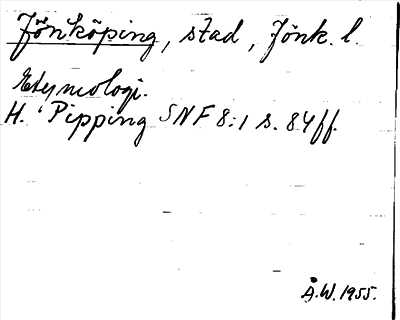 Jönköping, stad, Jönk. l.
Etymologi.
H. Pipping SNF 8:1 s. 84 ff.
Å.W. 1955.